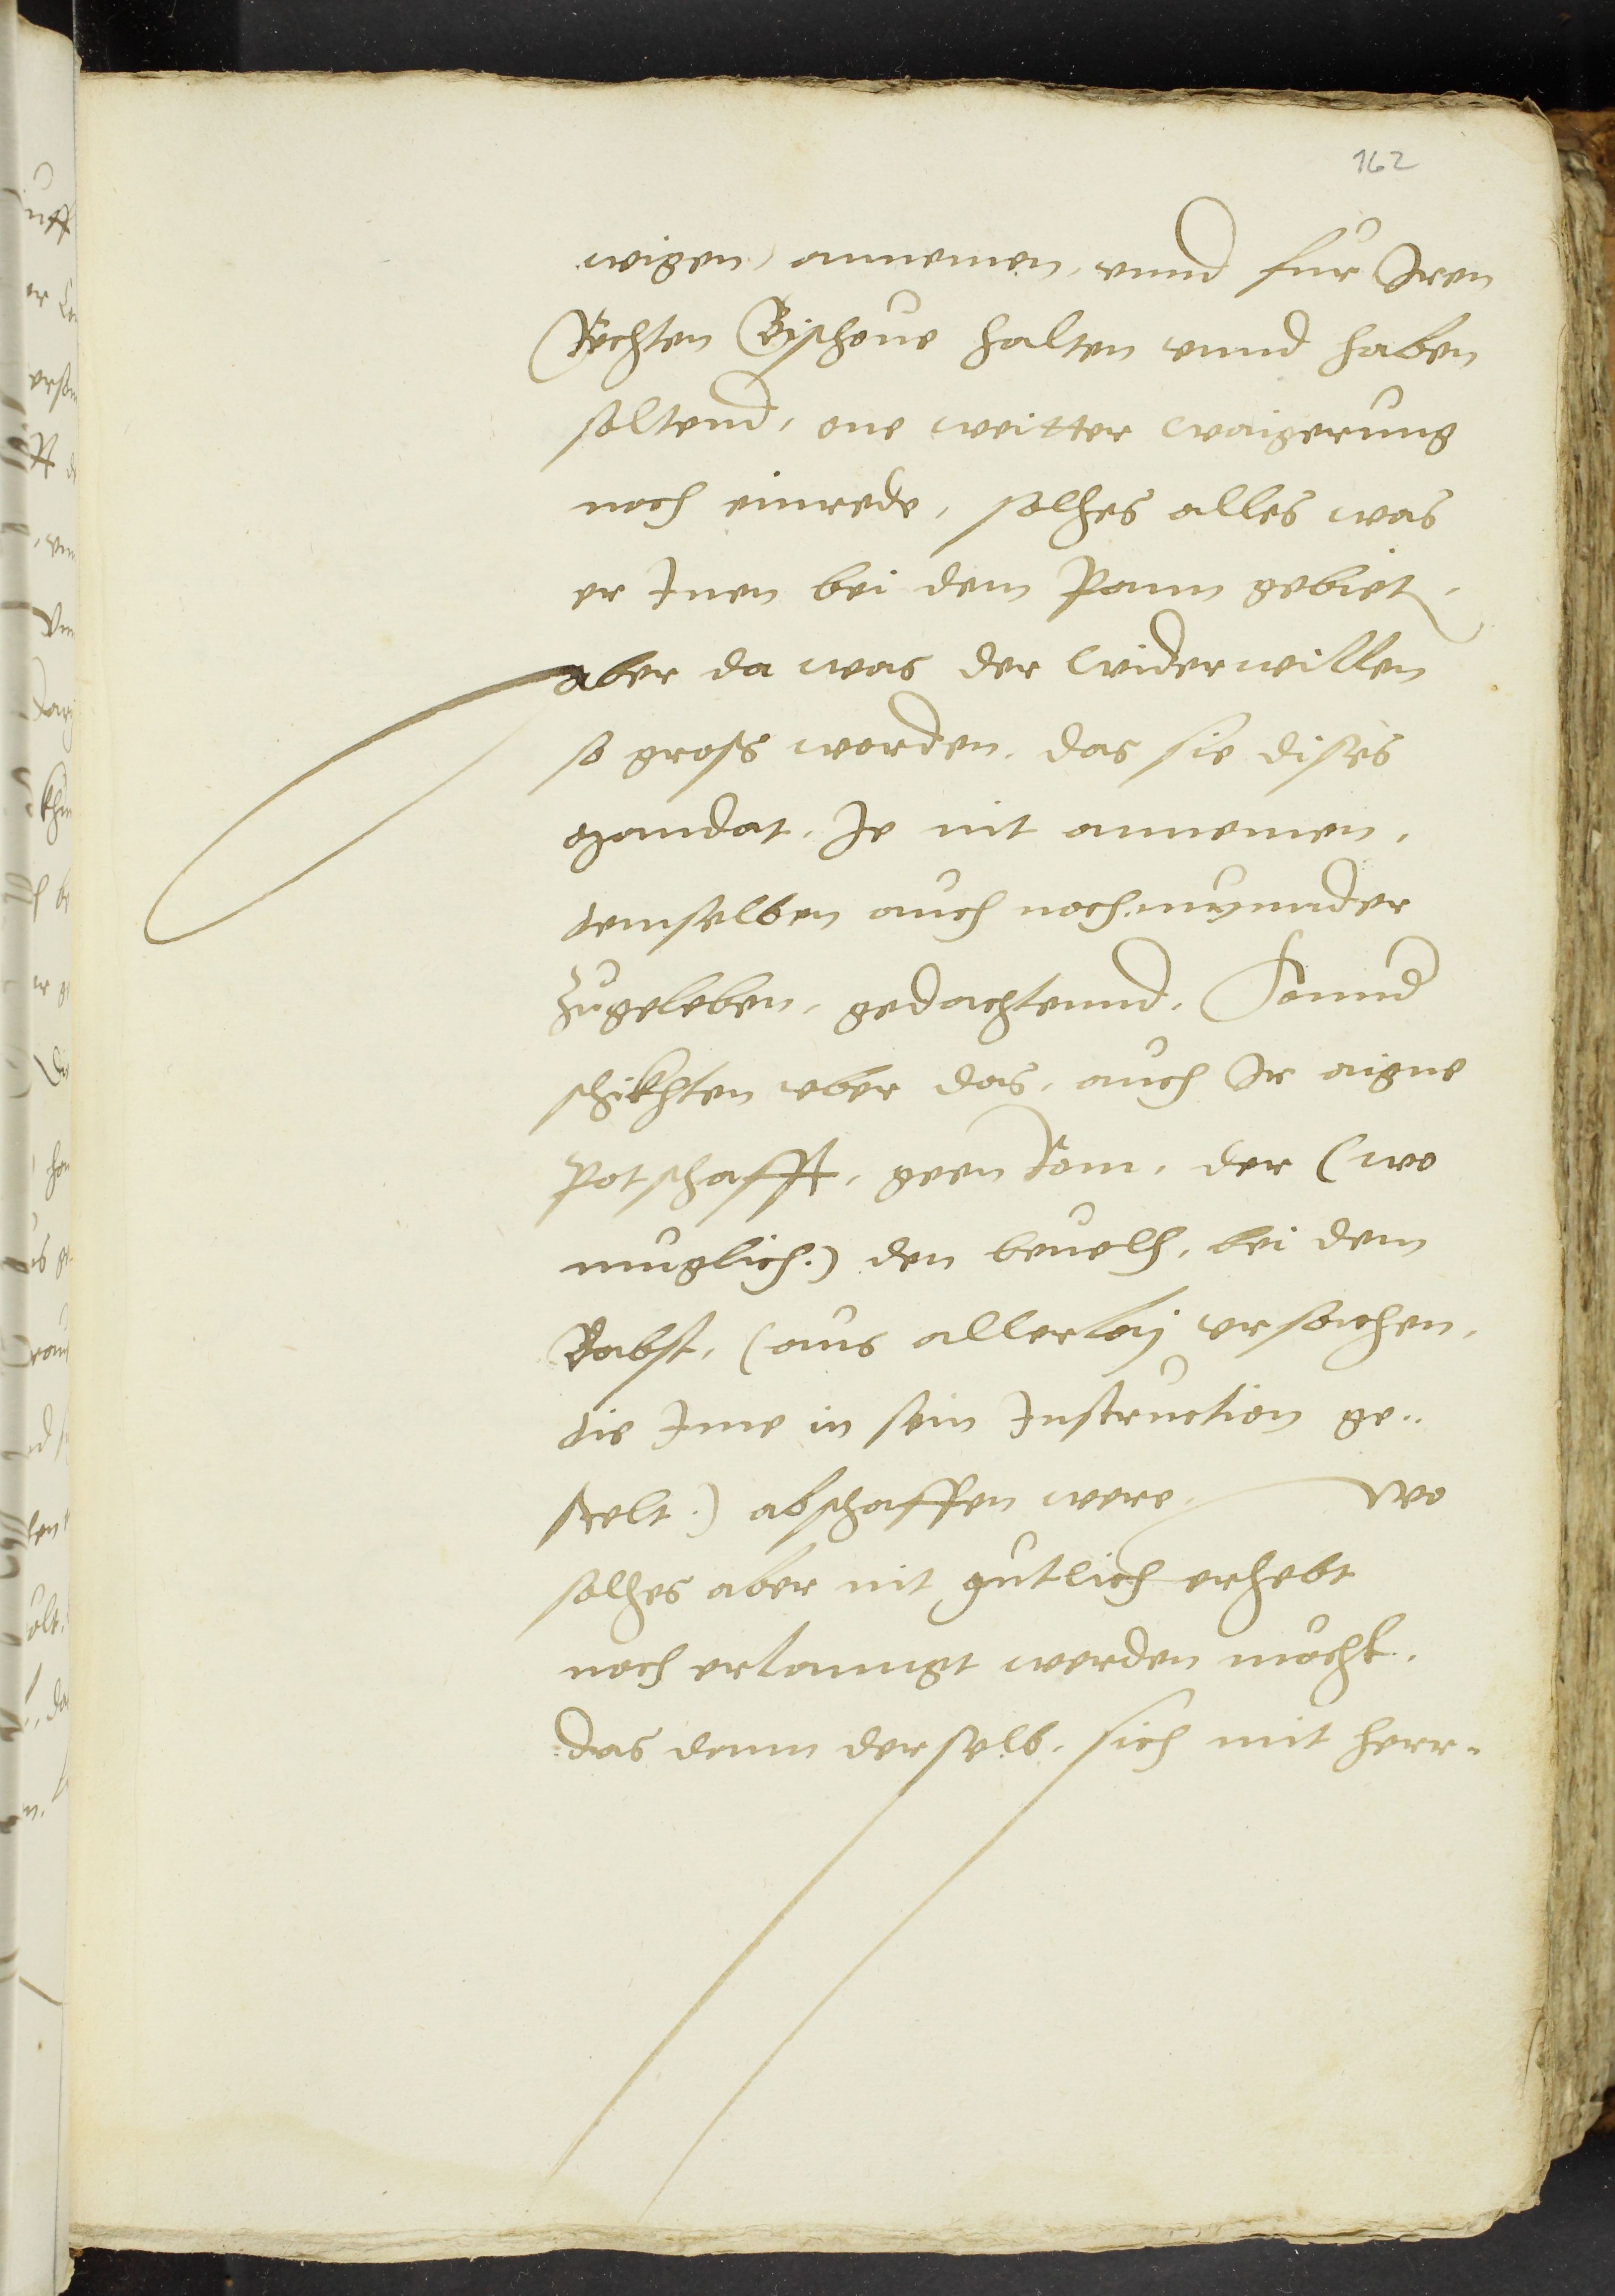 162
wigen, annemen, vnnd für Iren
Rechten Bischoue halten vnnd haben
soltend, one weitter waigerung
noch einrede, solhes alles was
er Inen bei dem Pann gebiet,
aber da was der widerwillen
so gross worden, das sie dises
Mandat, Je nit annemen,
demselben auch noch mynnder
zugeleben, gedachtennd, Sonnd
schikhten vber das, auch Ir aigne
Potschafft, geen Rom, der (wo
muglich.) den beuelh, bei dem
Babst, (aus allerlaÿ vrsachen,
die Ime in sein Instruction ge-
stelt.) abschaffen were, wo
solhes aber nit gutlich erhebt
noch erlanngt werden mocht,
das dann derselb, sich mit herr-